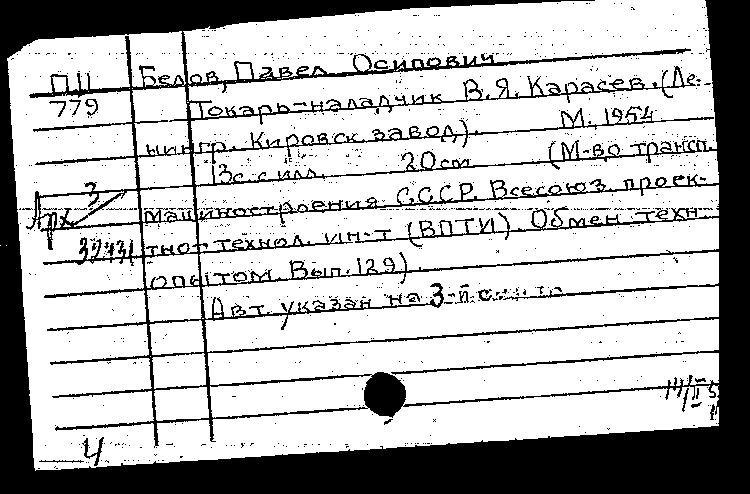 П11 Белов, Павел Осипович
779 Токарь-наладчик В.Я. Карасев. (Ле-
нингр. Кировск. завод). М. 1954
13с. с илл. 20см (М-во трансп.
Арх 3
машиностроения СССР. Всесоюз. проек-
тно-технол. ин-т (ВПТИ). Обмен техн.
опытом. Вып. 129).
Авт. указан на 3-й
4